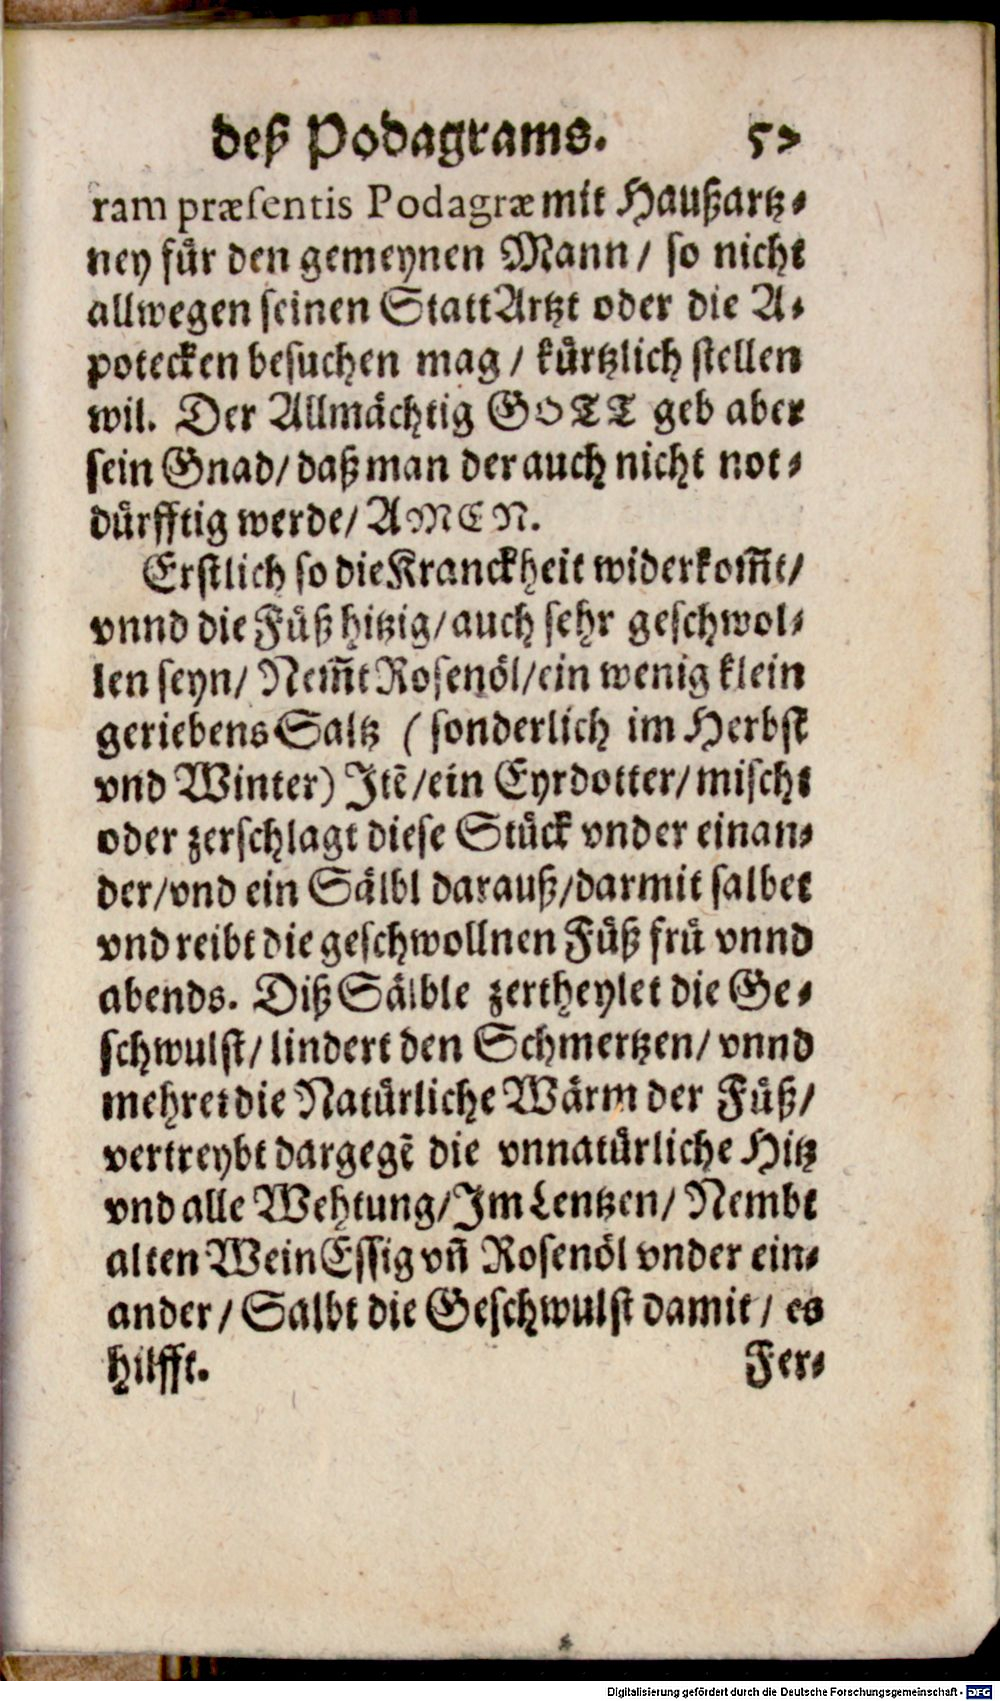 deß Podagrams. 57
ram præsentis Podagræ mit Haußartz⸗
ney fuͤr den gemeynen Mann/ so nicht
allwegen seinen Statt Artzt oder die A⸗
potecken besuchen mag/ kuͤrtzlich stellen
wil. Der Allmaͤchtig GOTT geb aber
sein Gnad/ daß man der auch nicht not⸗
duͤrfftig werde/ AMEN.
Erstlich so die Kranckheit widerkom̃t/
vnnd die Fuͤß hitzig/ auch sehr geschwol⸗
len seyn/ Nem̃t Rosenoͤl/ ein wenig klein
geriebens Saltz (sonderlich im Herbst
vnd Winter) Jtẽ/ ein Eyrdotter/ mischt
oder zerschlagt diese Stuͤck vnder einan⸗
der/ vnd ein Saͤlbl darauß/ darmit salbet
vnd reibt die geschwollnen Fuͤß fruͤ vnnd
abends. Diß Saͤlble zertheylet die Ge⸗
schwulst/ lindert den Schmertzen/ vnnd
mehret die Natuͤrliche Waͤrm der Fuͤß/
vertreybt dargegẽ die vnnatuͤrliche Hitz
vnd alle Wehtung/ Jm Lentzen/ Nembt
alten Wein Essig vñ Rosenoͤl vnder ein⸗
ander/ Salbt die Geschwulst damit/ es
hilfft. Fer⸗
Digitalisierung gefördert durch die Deutsche Forschungsgemeinschaft - DFG